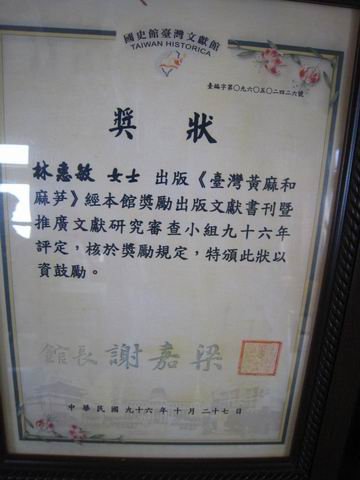 國史館臺灣文獻館
TAIWAN HISTORICA
臺編字第○九六○五○二四二六號
獎狀
林惠敏 女士 出版《臺灣黃麻和
麻芛》經本館獎勵出版文獻書刊暨
推廣文獻研究審查小組九十六年
評定，核於獎勵規定，特頒此狀以
資鼓勵。
館長 謝嘉梁
中華民國九十六年十月二十七日